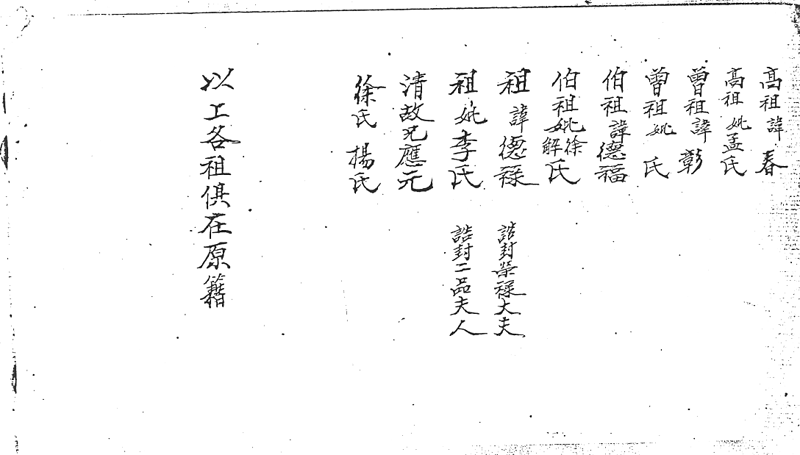 高祖諱春
高祖妣孟氏
曾祖諱彰
曾祖妣 氏
伯祖諱德福
伯祖妣徐解氏
祖諱德祿 誥封榮祿大夫
祖妣李氏 誥封二品夫人
清故兄應元
徐氏 楊氏
以上各祖俱在原籍